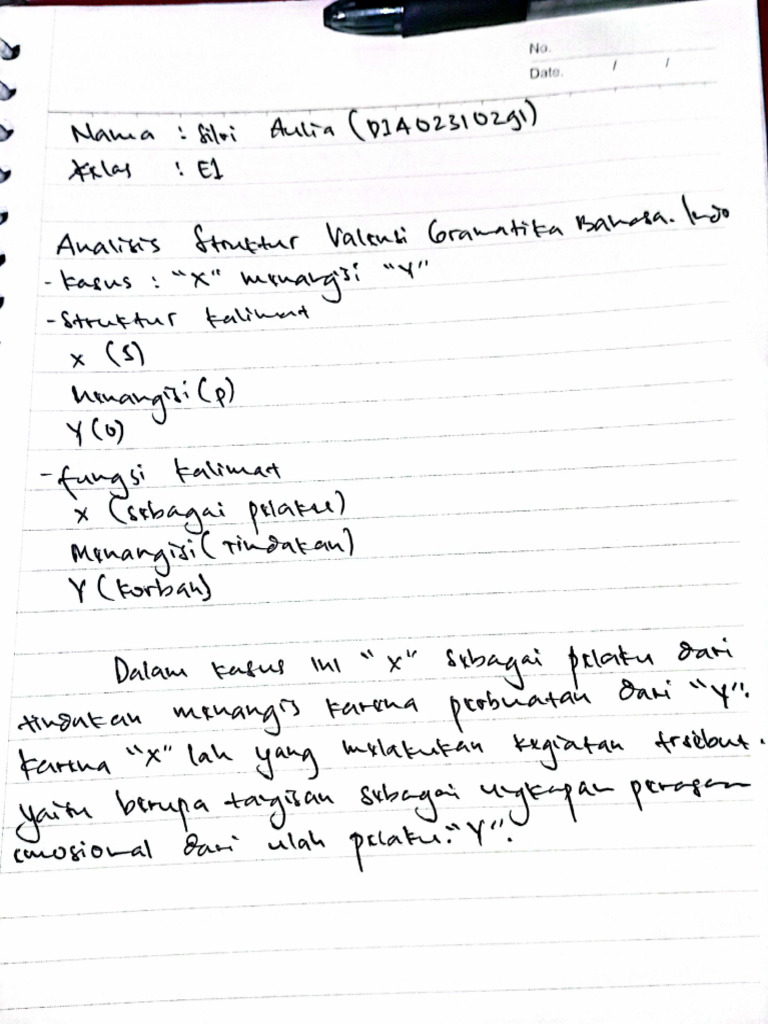 No.
Date. / /
Nama : Silvi Aulia (D1A02310291)
Kelas : E1
Analisis Struktur Valensi Gramatika Bahasa. Indo
- Kasus : "X" menangisi "Y"
- Struktur kalimat
X (S)
Menangisi (P)
Y (O)
- fungsi kalimat
X (sebagai pelaku)
Menangisi (Tindakan)
Y (Korban)
Dalam kasus ini "X" sebagai pelaku dari
tindakan menangis karena perbuatan dari "Y".
karena "X" lah yang melakukan kegiatan trsebut.
yaitu berupa tangisan sebagai ungkapan perasaan
emosional dari ulah pelaku "Y".